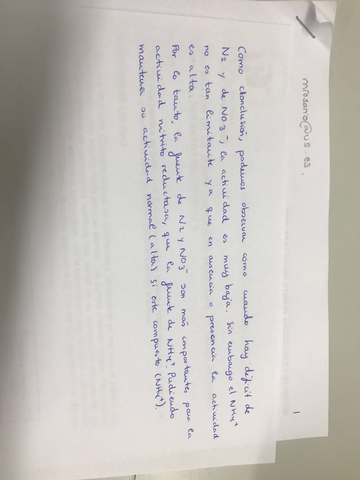 mrosano@us.es.
1
Como conclusión, podemos observar como cuando hay déficit de
N2 y de NO3-, la actividad es muy baja. Sin embargo el NH4+
no es tan limitante ya que en ausencia o presencia la actividad
es alta.
Por lo tanto, la fuente de N2 y NO3- son más importantes para la
actividad nitrito reductasa, que la fuente de NH4+. Pudiendo
mantener su actividad normal (alta) si este compuesto (NH4+).